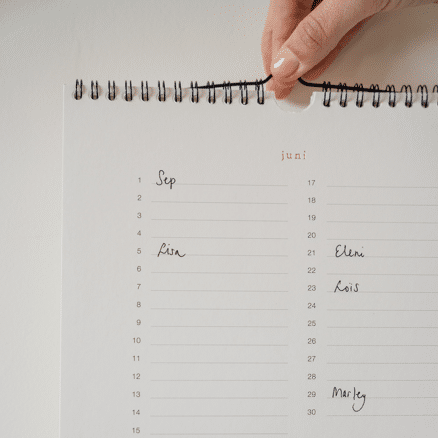 juni
1 Sep
2
3
4
5 Lisa
6
7
8
9
10
11
12
13
14
15
17
18
19
20
21 Eleni
22
23 Loïs
24
25
26
27
28
29 Marley
30